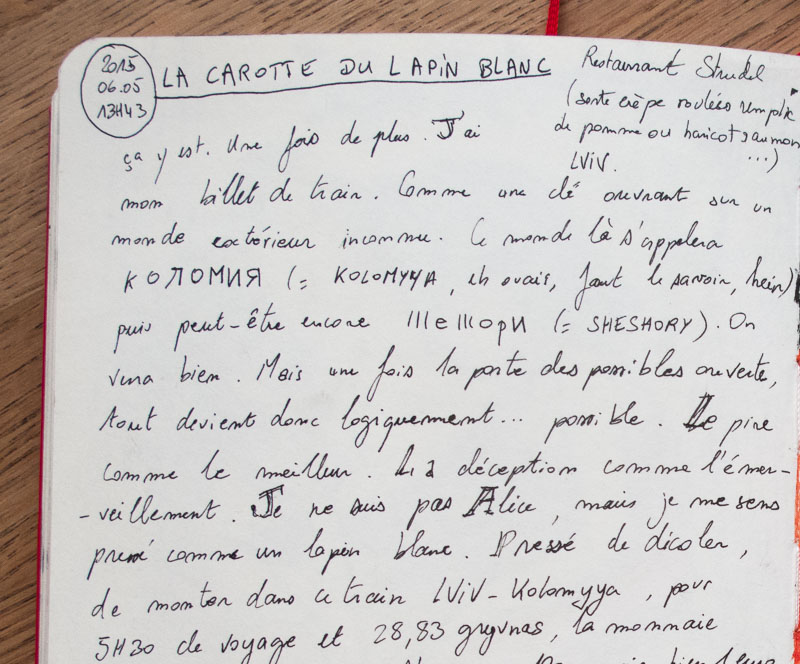 2015
06.05
13H43
LA CAROTTE DU LAPIN BLANC
Restaurant Strudel
(sorte crêpe roulées remplie
de pomme ou haricot saumon
...)
LVIV.
ça y est. Une fois de plus. J'ai
mon billet de train. Comme une clé ouvrant sur un
monde extérieur inconnu. Ce monde là s'appelera
КОЛОМИЯ (= KOLOMYYA, eh ouais, faut le savoir, hein)
puis peut-être encore ШеШори (= SHESHORY). On
verra bien. Mais une fois la porte des possibles ouverte,
tout devient donc logiquement... possible. Le pire
comme le meilleur. La déception comme l'émer-
-veillement. Je ne suis pas Alice, mais je me sens
pressé comme un lapin blanc. Pressé de décoler,
de monter dans ce train LViV-Kolomyya, pour
5H30 de voyage et 28,83 gryvnas, la monnaie